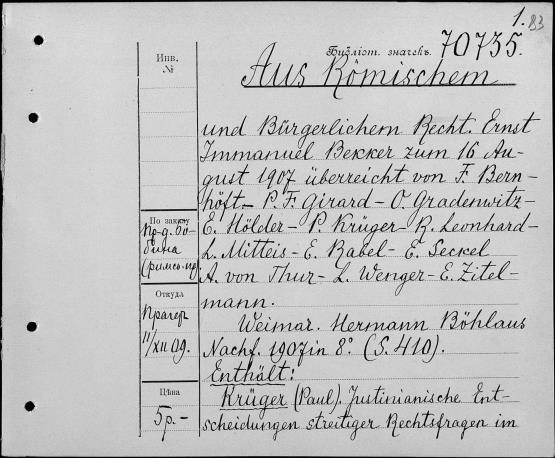 1.
83
Библіот. значекъ. 70735.
Aus Römischem
und Bürgerlichem Recht. Ernst
Immanuel Bekker zum 16 Au-
gust 1907 überreicht von F. Bern-
höft – P. F. Girard – O. Gradenwitz –
E. Hölder – P. Krüger – R. Leonhard –
L. Mitteis – E. Rabel – E. Seckel
A. von Thur – L. Wenger – E. Zitel-
mann.
Weimar. Hermann Böhlaus
Nachf. 1907 in 8° (S. 410).
Enthält:
Krüger (Paul). Justinianische Ent-
scheidungen streitiger Rechtsfragen im
Инв.
№
По заказу
Пр-д.
Откуда
Прагеръ
11/XII 09.
Цѣна
5 р. –